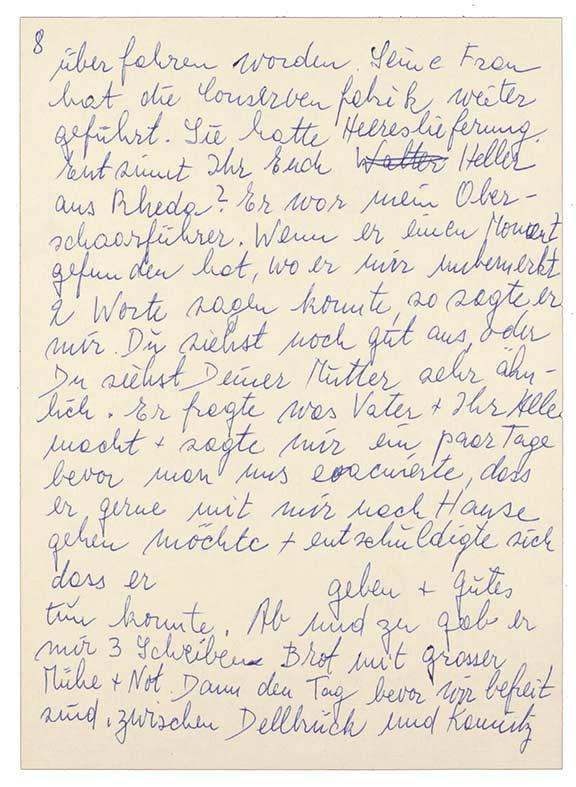 8
überfahren worden. Seine Frau
hat die Conservenfabrik weiter
geführt. Sie hatte Heereslieferung.
Entsinnt Ihr Euch Walter Heller
aus Rheda? Er war mein Ober-
schaarführer. Wenn er einen Moment
gefunden hat, wo er mir unbemerkt
2 Worte sagen konnte, so sagte er
mir. Du siehst noch gut aus, oder
Du siehst Deiner Mutter sehr ähn-
lich. Er fragte was Vater + Ihr Alle
macht + sagte mir ein paar Tage
bevor man uns evacuierte, dass
er gerne mit mir nach Hause
gehen möchte + entschuldigte sich
dass er geben + Gutes
tun konnte. Ab und zu gab er
mir 3 Scheiben Brot mit grosser
Mühe + Not. Dann den Tag bevor wir befreit
sind, zwischen Dellbrück und